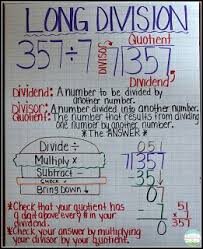 LONG DIVISION
357÷7
Quotient
DIVISOR
7 357
Dividend
Dividend: A number to be divided by
another number.
Divisor: A number divided into another number.
Quotient: The number that results from dividing
one number by another number.
*The ANSWER*
Divide ÷
Multiply ×
Subtract -
CHECK
Bring Down ↓
51
7 357
-35↓
07
-7
0
*Check that your quotient has
a digit above every # in your
dividend.
*Check your answer by multiplying
your divisor by your quotient.
51
×7
357